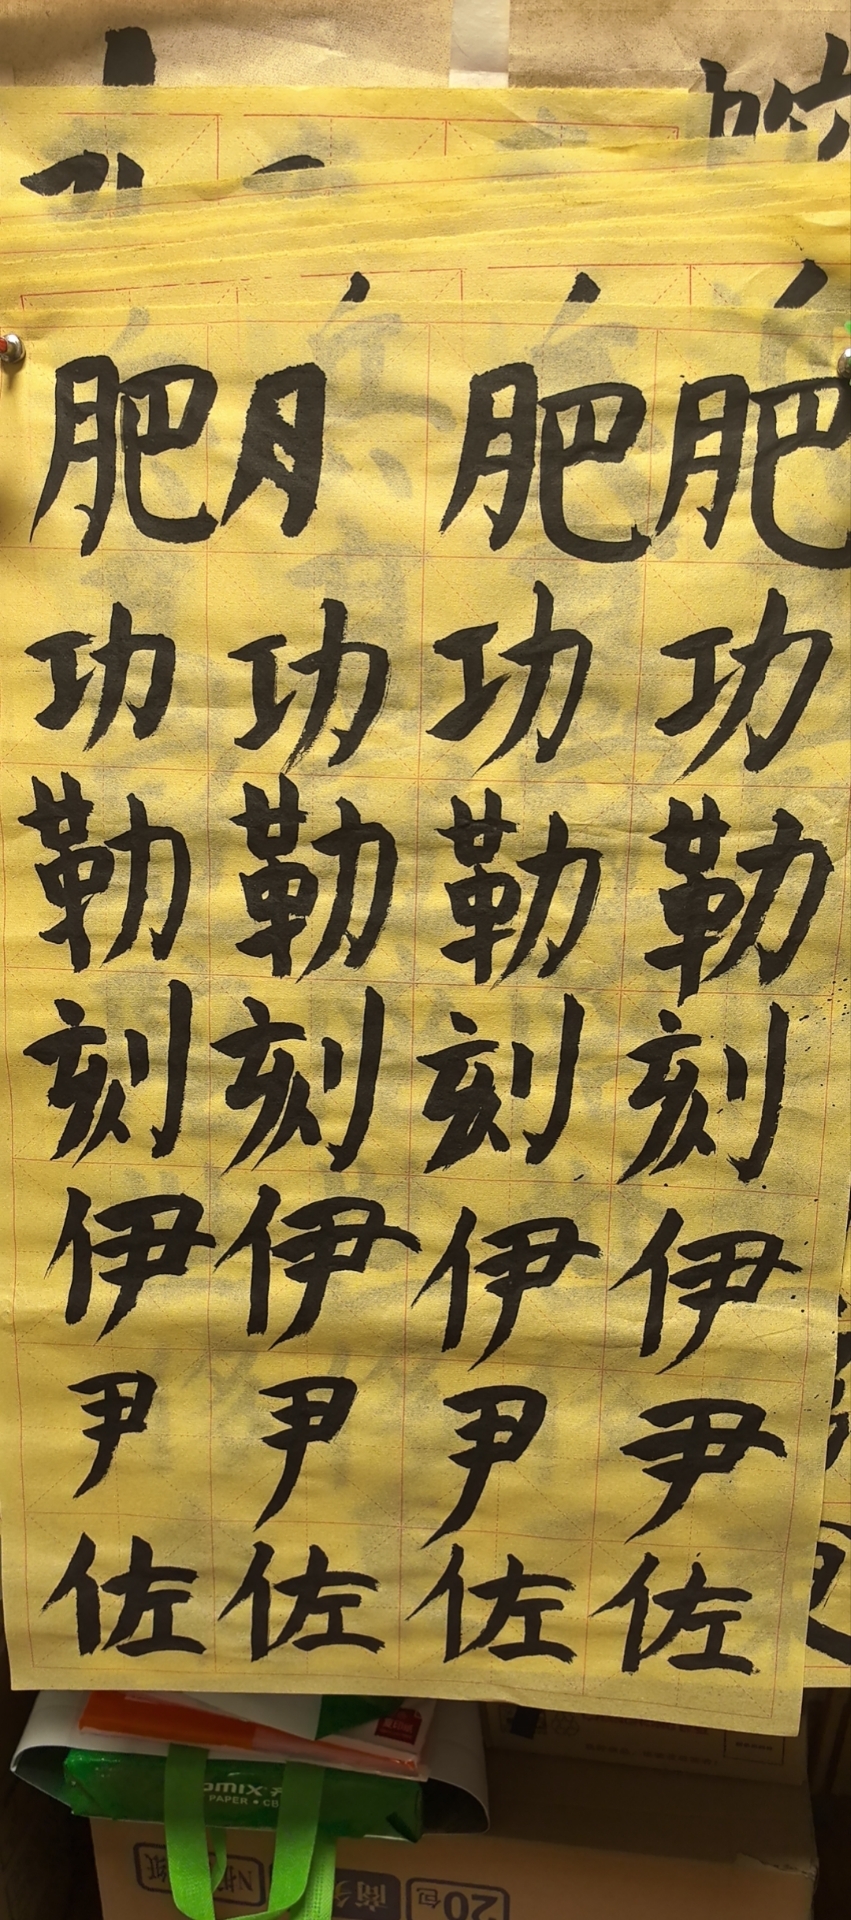 肥月肥肥
功功功功
勒勒勒勒
刻刻刻刻
伊伊伊伊
尹尹尹尹
佐佐佐佐
PAPER
20包